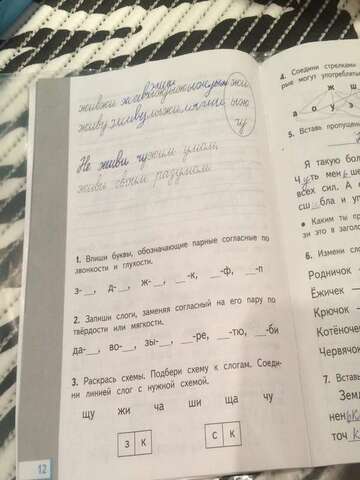 Не живи чужим умом,
живи своим разумом.
1. Впиши буквы, обозначающие парные согласные по
звонкости и глухости.
з-__, д-__, ж-__, __-к, __-ф, __-п
2. Запиши слоги, заменяя согласный на его пару по
твёрдости или мягкости.
да-__, во-__, зы-__, __-ре, __-тю, __-би
3. Раскрась схемы. Подбери схему к слогам. Соеди-
ни линией слог с нужной схемой.
щу жи ча ши ща чу
з к с к
12
4. Соедини стрелками
рые могут употреблять
ж ш
а о у э
5. Вставь пропущен
Я такую бол
Чуть мен ше
всех сил. А
сш бла и уп
• Каким ты пр
зи это в загол
6. Измени сло
Родничок
Ёжичек —
Крючок —
Котёночек
Червячок
7. Вставь
Земл
нень
точ к